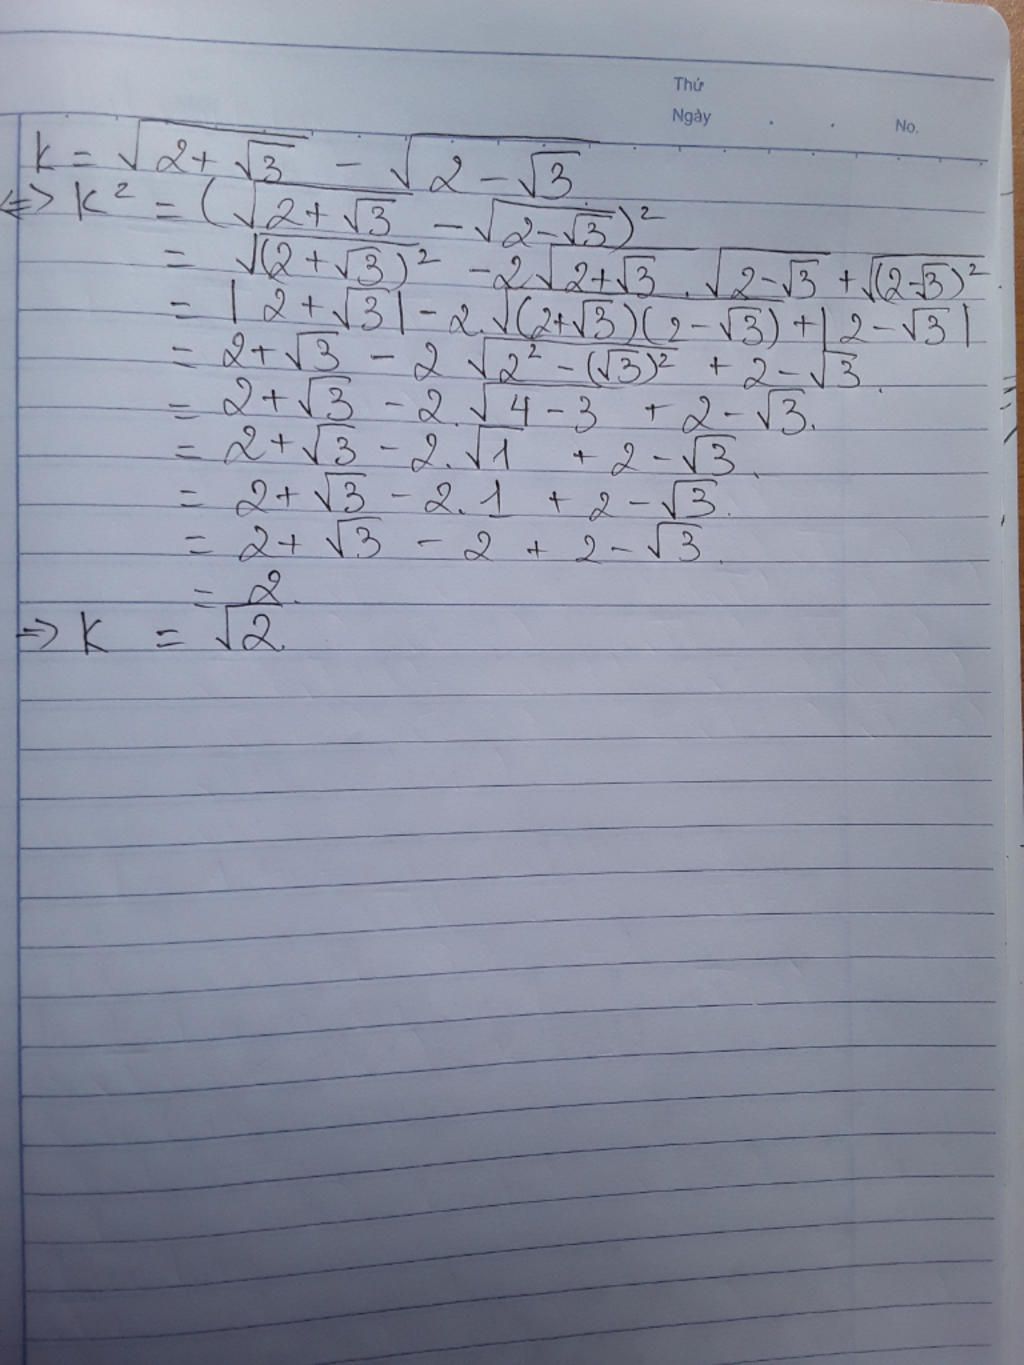 Thứ
Ngày
No.
k = √(2 + √3) − √(2 − √3)
<=> k² = (√(2 + √3) − √(2 − √3))²
= √(2 + √3)² − 2√(2 + √3) . √(2 − √3) + √(2 − √3)²
= |2 + √3| − 2.√(2 + √3)(2 − √3) + |2 − √3|
= 2 + √3 − 2 √(2² − (√3)²) + 2 − √3.
= 2 + √3 − 2.√(4 − 3) + 2 − √3.
= 2 + √3 − 2.√1 + 2 − √3.
= 2 + √3 − 2.1 + 2 − √3.
= 2 + √3 − 2 + 2 − √3.
= 2.
=> k = √2.